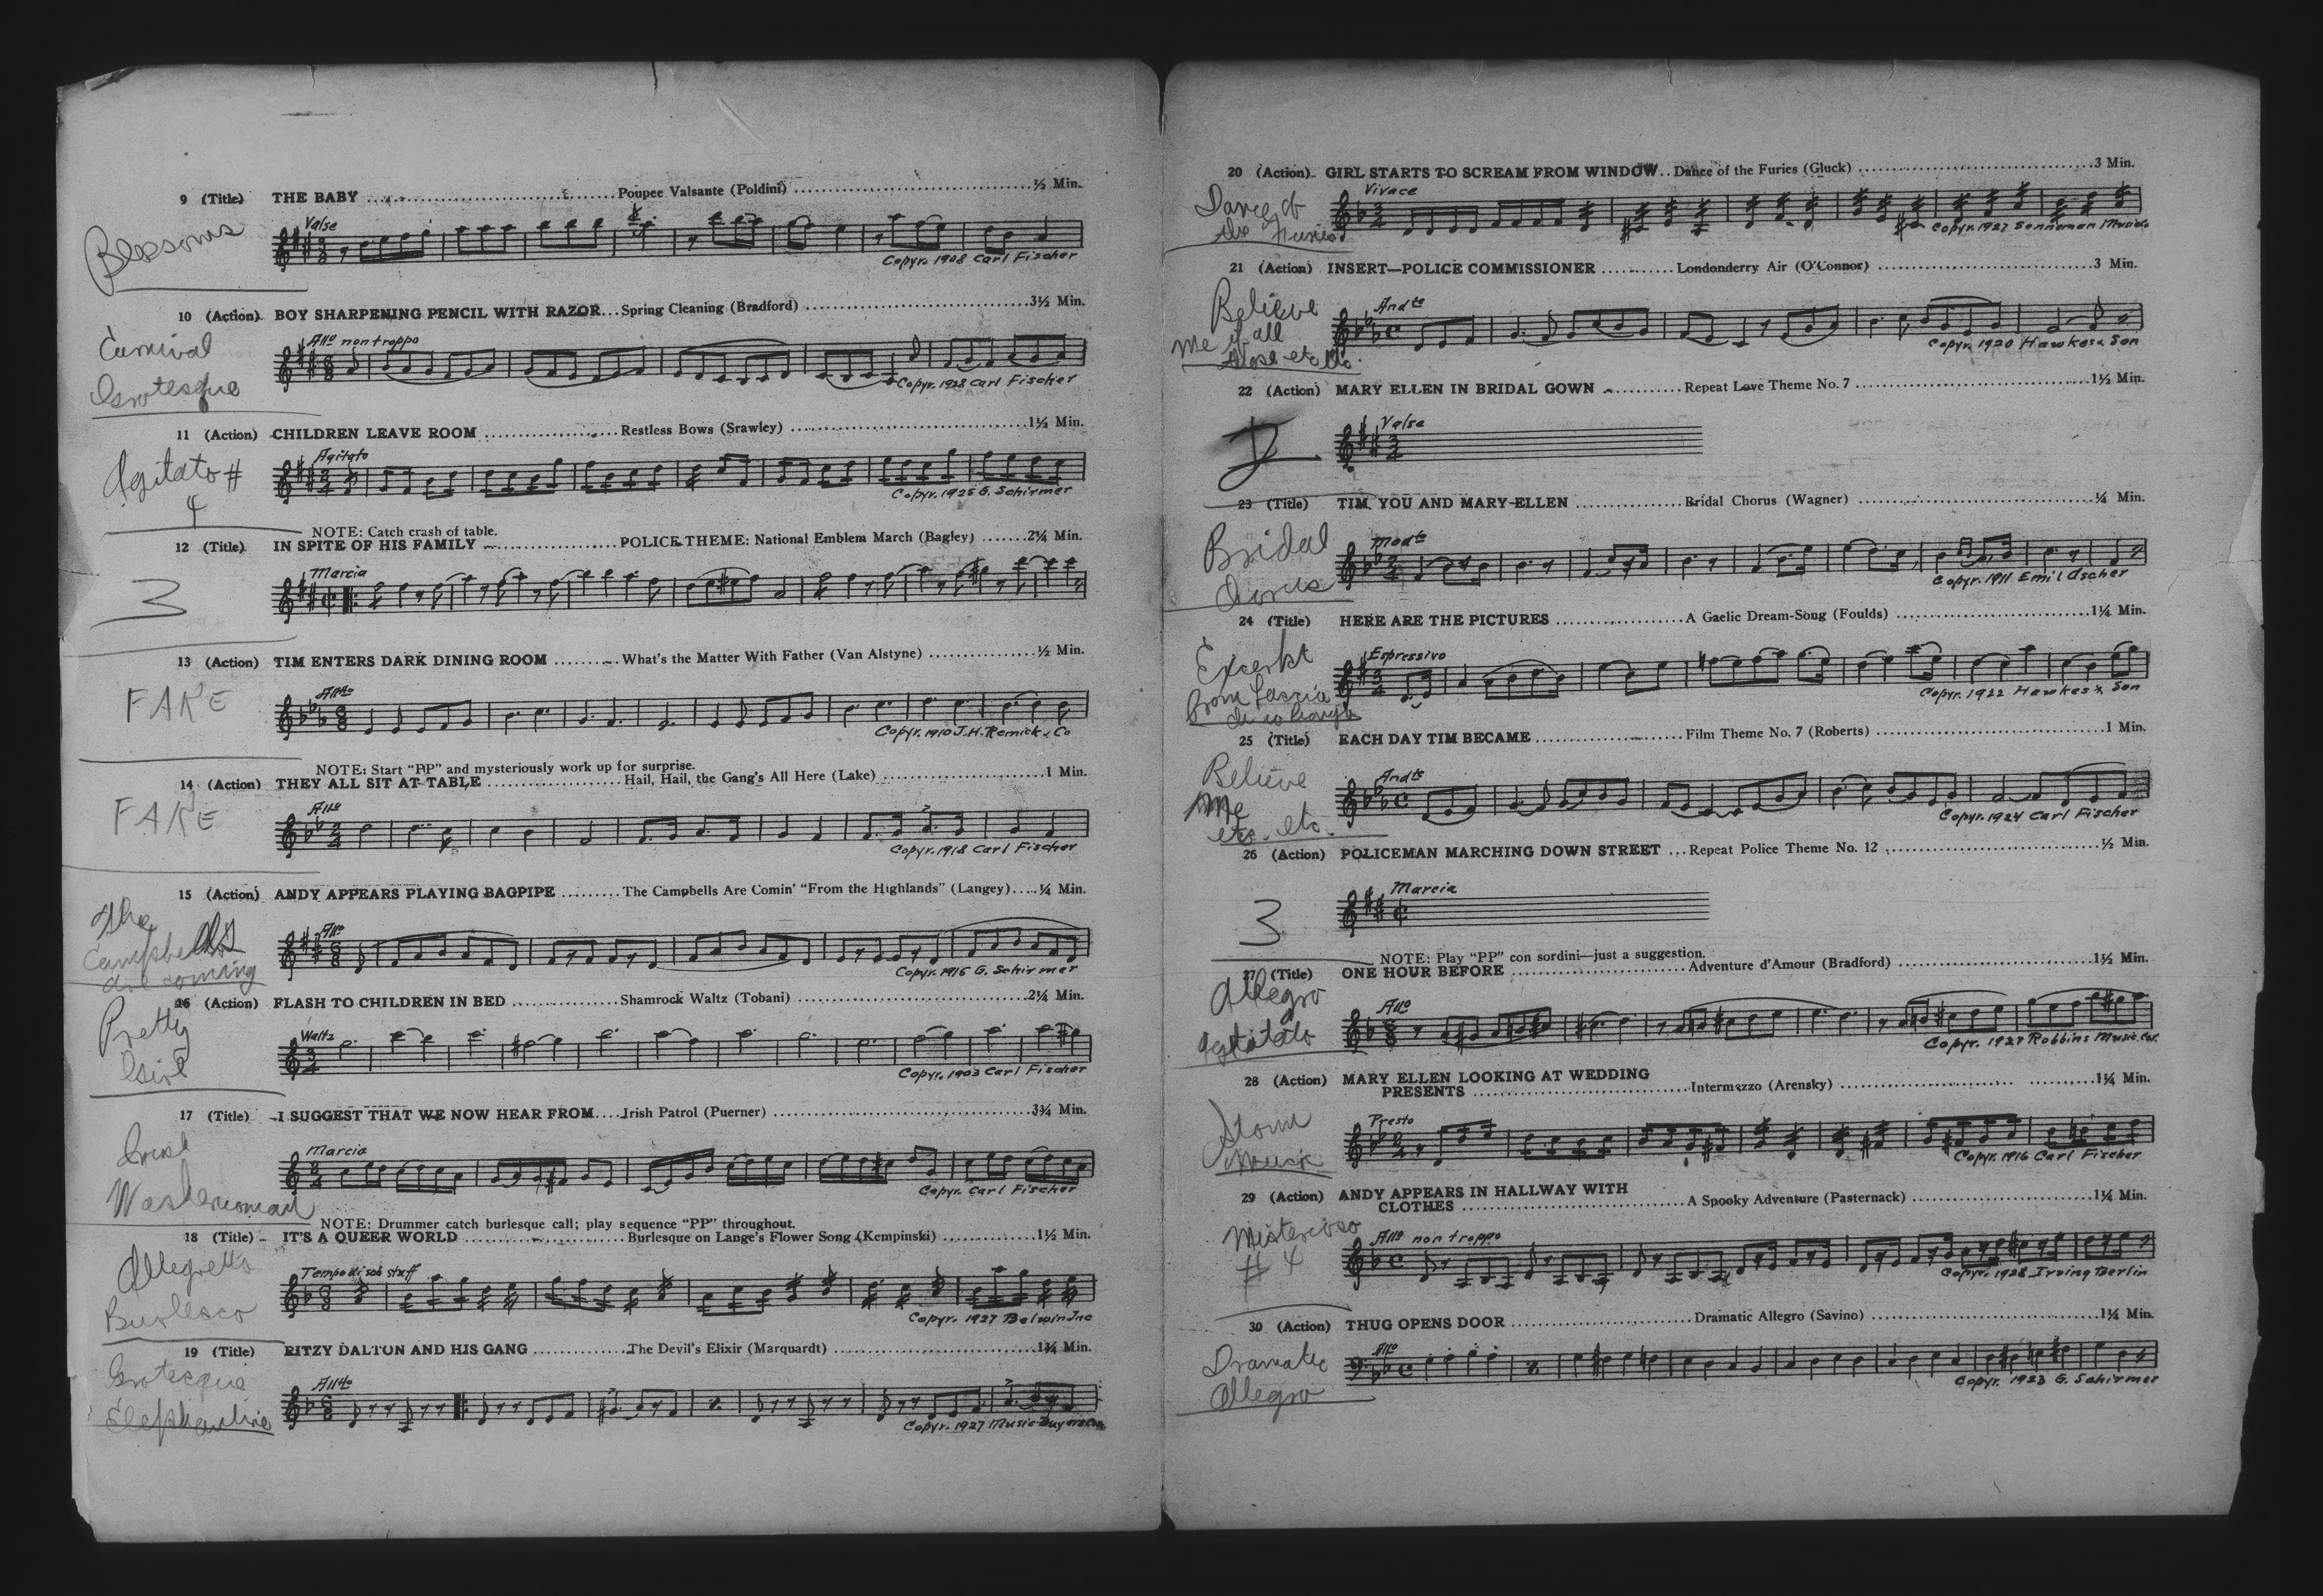 9 (Title) THE BABY ........ Poupee Valsante (Poldini) ........ ½ Min.
Blossoms
Valse
Copyr. 1908 Carl Fischer
10 (Action) BOY SHARPENING PENCIL WITH RAZOR... Spring Cleaning (Bradford) ........ 3½ Min.
Carnival
Grotesque
Allo non troppo
Copyr. 1928 Carl Fischer
11 (Action) CHILDREN LEAVE ROOM ........ Restless Bows (Srawley) ........ 1½ Min.
Agitato #
4
Agitato
Copyr. 1925 G. Schirmer
NOTE: Catch crash of table.
12 (Title) IN SPITE OF HIS FAMILY ........ POLICE THEME: National Emblem March (Bagley) ....... 2¼ Min.
3
Marcia
13 (Action) TIM ENTERS DARK DINING ROOM ........ What's the Matter With Father (Van Alstyne) ........ ½ Min.
FAKE
Alltto
Copyr. 1910 J.H. Remick & Co
NOTE: Start "PP" and mysteriously work up for surprise.
14 (Action) THEY ALL SIT AT TABLE ........ Hail, Hail, the Gang's All Here (Lake) ........ 1 Min.
FAKE
Allo
Copyr. 1918 Carl Fischer
15 (Action) ANDY APPEARS PLAYING BAGPIPE ........ The Campbells Are Comin' "From the Highlands" (Langey)..... ¼ Min.
The
Campbells
are coming
Allo
Copyr. 1916 G. Schirmer
16 (Action) FLASH TO CHILDREN IN BED ........ Shamrock Waltz (Tobani) ........ 2¼ Min.
Pretty
Girl
Waltz
Copyr. 1903 Carl Fischer
17 (Title) I SUGGEST THAT WE NOW HEAR FROM.... Irish Patrol (Puerner) ........ 3¾ Min.
Irish
Washerwoman
Marcia
Copyr. Carl Fischer
NOTE: Drummer catch burlesque call; play sequence "PP" throughout.
18 (Title) IT'S A QUEER WORLD ........ Burlesque on Lange's Flower Song (Kempinski) ........ 1½ Min.
Allegretto
Burlesco
Tempo di sob stuff
Copyr. 1927 Belwin Inc
19 (Title) RITZY DALTON AND HIS GANG ........ The Devil's Elixir (Marquardt) ........ 1¾ Min.
Grotesque
Elephantine
Alltto
Copyr. 1927 Music Buyers
20 (Action) GIRL STARTS TO SCREAM FROM WINDOW.. Dance of the Furies (Gluck) ........ 3 Min.
Dance of
the Furies
Vivace
Copyr. 1927 Sonneman Music
21 (Action) INSERT—POLICE COMMISSIONER ........ Londonderry Air (O'Connor) ........ 3 Min.
Believe
me if all
those etc
Andte
Copyr. 1920 Hawkes & Son
22 (Action) MARY ELLEN IN BRIDAL GOWN ........ Repeat Love Theme No. 7 ........ 1½ Min.
Valse
23 (Title) TIM, YOU AND MARY ELLEN ........ Bridal Chorus (Wagner) ........ ¼ Min.
Bridal
Chorus
Modto
Copyr. 1911 Emil Ascher
24 (Title) HERE ARE THE PICTURES ........ A Gaelic Dream-Song (Foulds) ........ 1¼ Min.
from Lascia
Espressivo
Copyr. 1922 Hawkes & Son
25 (Title) EACH DAY TIM BECAME ........ Film Theme No. 7 (Roberts) ........ 1 Min.
Believe
Me
etc. etc.
Andte
Copyr. 1924 Carl Fischer
26 (Action) POLICEMAN MARCHING DOWN STREET ... Repeat Police Theme No. 12 ........ ½ Min.
3
Marcia
NOTE: Play "PP" con sordini—just a suggestion.
27 (Title) ONE HOUR BEFORE ........ Adventure d'Amour (Bradford) ........ 1½ Min.
Allegro
Agitato
Allo
Copyr. 1927 Robbins Music Cor.
28 (Action) MARY ELLEN LOOKING AT WEDDING
PRESENTS ........ Intermezzo (Arensky) ........ 1¼ Min.
Storm
Music
Presto
Copyr. 1916 Carl Fischer
29 (Action) ANDY APPEARS IN HALLWAY WITH
CLOTHES ........ A Spooky Adventure (Pasternack) ........ 1¼ Min.
Misterioso
# 4
Allo non troppo
Copyr. 1928 Irving Berlin
30 (Action) THUG OPENS DOOR ........ Dramatic Allegro (Savino) ........ 1¼ Min.
Dramatic
Allegro
Allo
Copyr. 1923 G. Schirmer